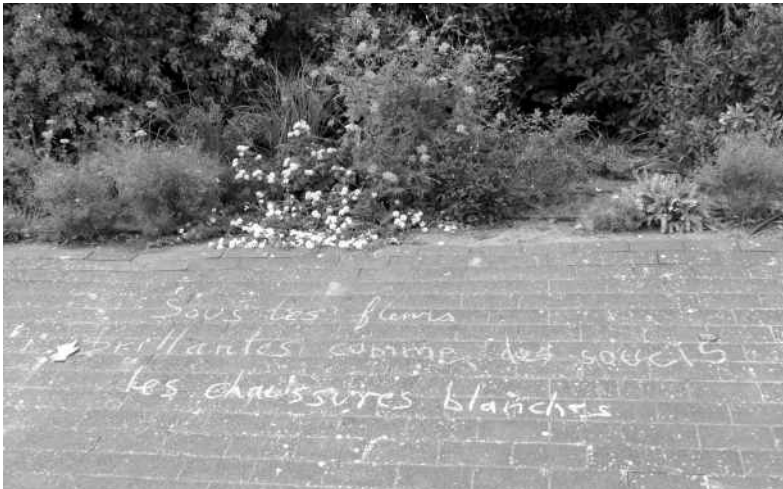 Sous les fleurs
brillantes comme des soucis
les chaussures blanches